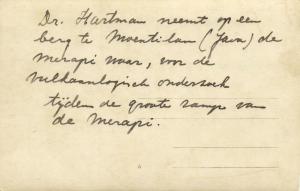 Dr. Hartman neemt op een
berg te Moentilan (Java) de
Merapi waar, voor de
vulkaanlogisch onderzoek
tijdens de groote ramp van
de Merapi.